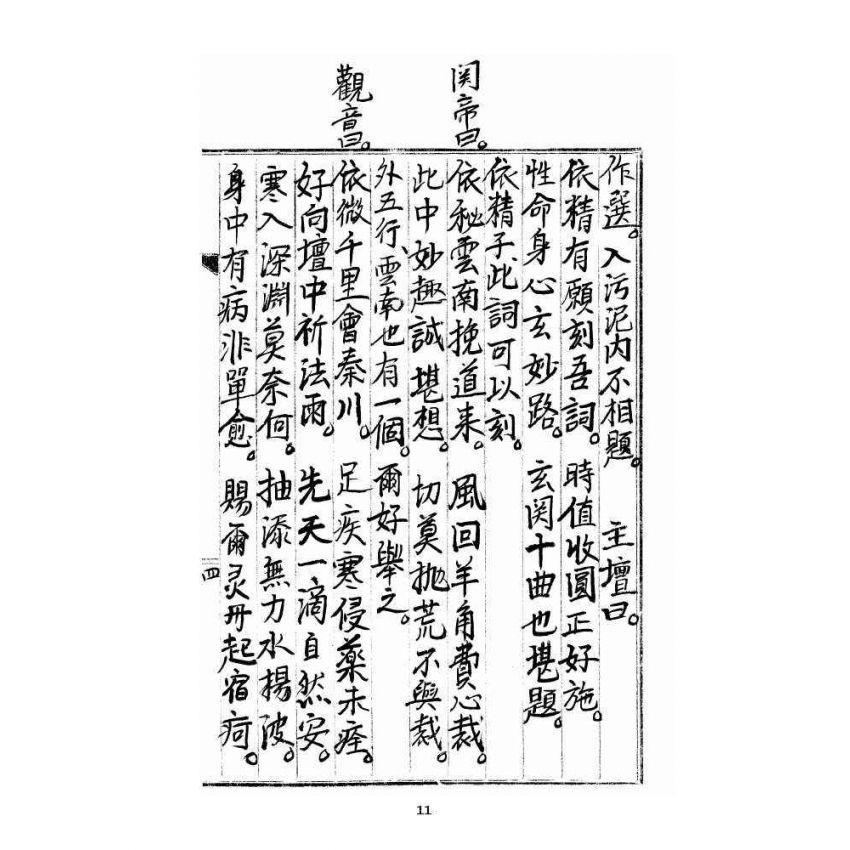 作選。入污泥內不相題。主壇曰。
依精有願刻吾詞。時值收圓正好施。
性命身心玄妙路。玄関十曲也堪題。
依精子、此詞可以刻。
関帝曰。
依秘雲南挽道来。風回羊角費心裁。
此中妙趣誠堪想。切莫抛荒不與裁。
外五行、雲南也有一個。爾好舉之。
觀音曰。
依微千里會秦川。足疾寒侵藥未痊。
好向壇中祈法雨。先天一滴自然安。
寒入深淵莫奈何。抽添無力水揚波。
身中有病非單愈。賜爾灵丹起宿疴。
四
11